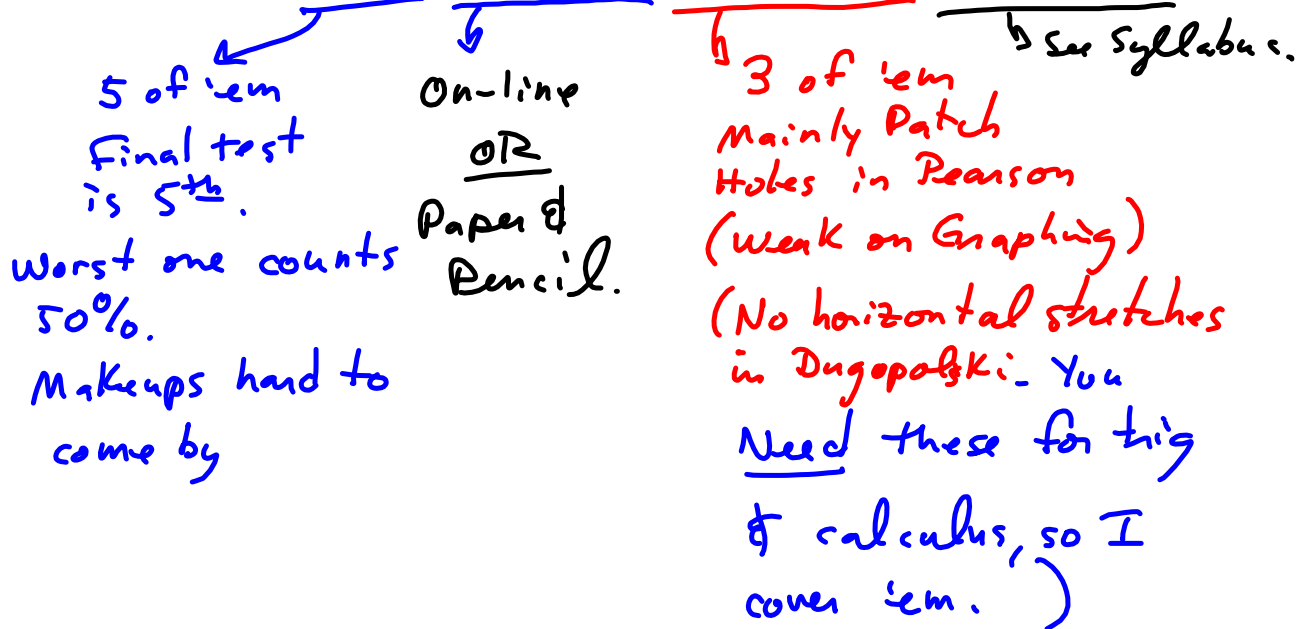 5 of 'em
Final test
is 5th.
Worst one counts
50%.
Makeups hard to
come by
On-line
OR
Paper &
Pencil.
3 of 'em
Mainly Patch
Holes in Pearson
(Weak on Graphing)
(No horizontal stretches
in Dugopolski. You
Need these for trig
& calculus, so I
cover 'em. )
See Syllabus.